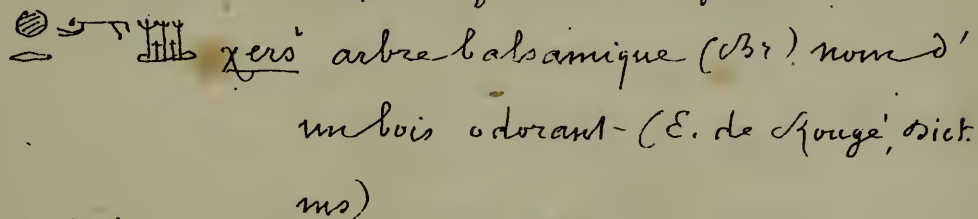 χers̀ arbre balsamique (Br). nom d'
un bois odorant - (E. de Rougé, Dict.
ms)